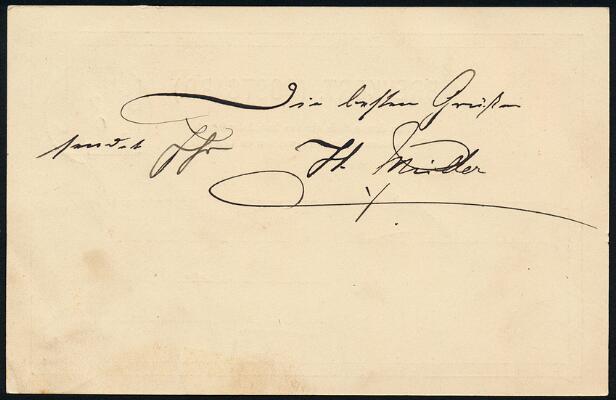 Die besten Grüße
sendet Ihr H. Minder